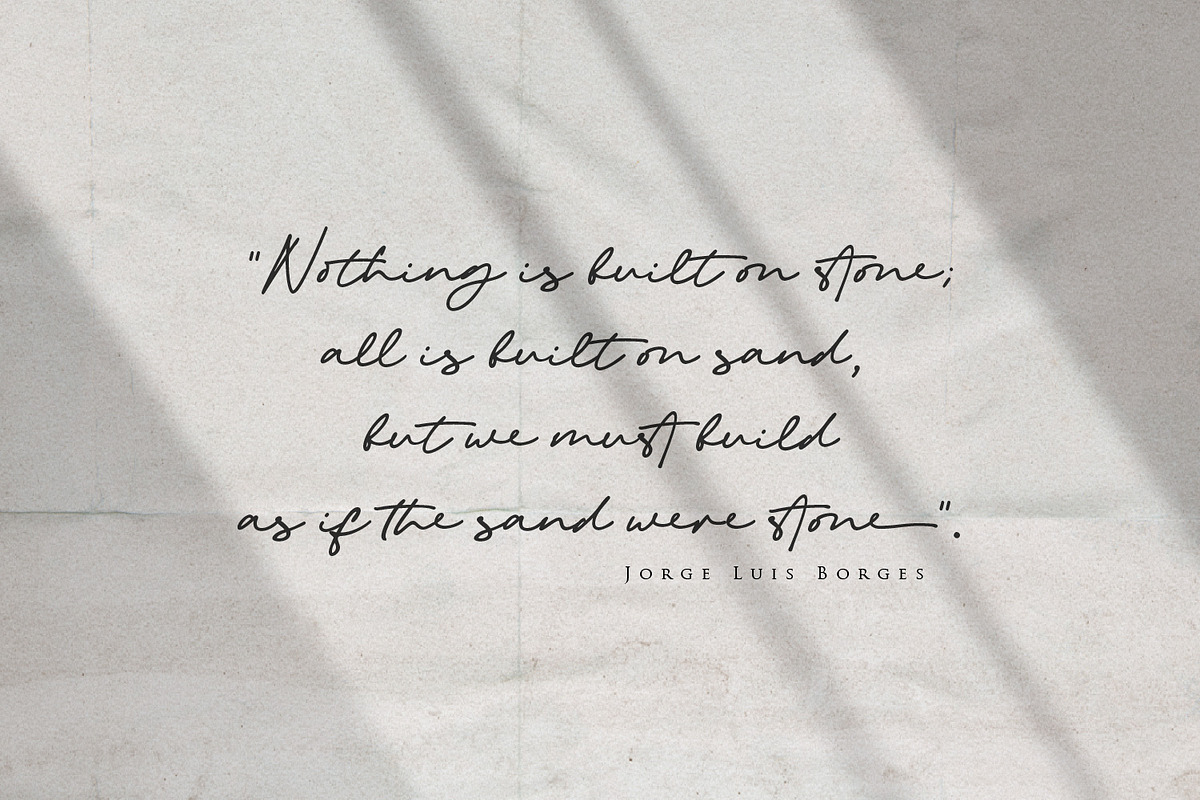 "Nothing is built on stone;
all is built on sand,
but we must build
as if the sand were stone".
Jorge Luis Borges